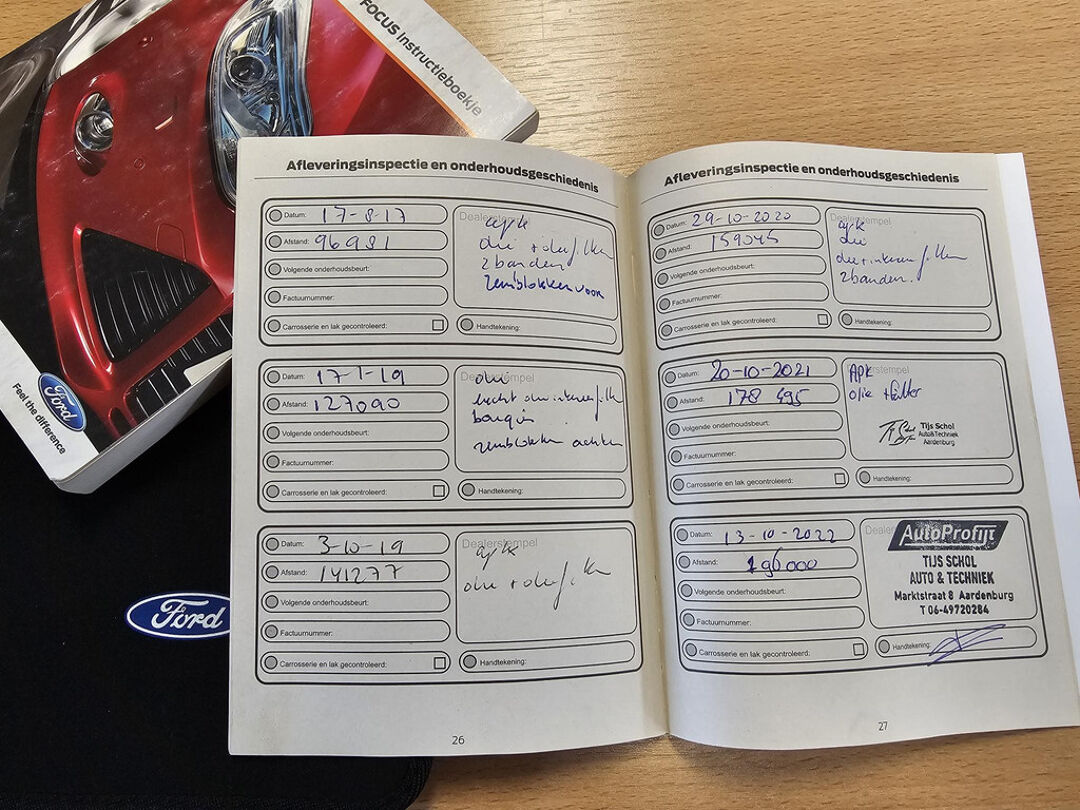 FOCUS Instructieboekje
Feel the difference
Ford
Ford
Afleveringsinspectie en onderhoudsgeschiedenis
Datum: 17-8-17
Afstand: 96981
Volgende onderhoudsbeurt:
Factuurnummer:
Carrosserie en lak gecontroleerd:
Dealerstempel
apk
olie + oliefilter
2 banden
remblokken voor
Handtekening:
Datum: 17-1-19
Afstand: 127090
Volgende onderhoudsbeurt:
Factuurnummer:
Carrosserie en lak gecontroleerd:
Dealerstempel
olie
lucht olie interieurfilter
bougies
remblokken achter
Handtekening:
Datum: 3-10-19
Afstand: 141277
Volgende onderhoudsbeurt:
Factuurnummer:
Carrosserie en lak gecontroleerd:
Dealerstempel
apk
olie + oliefilter
Handtekening:
26
Afleveringsinspectie en onderhoudsgeschiedenis
Datum: 29-10-2020
Afstand: 159045
Volgende onderhoudsbeurt:
Factuurnummer:
Carrosserie en lak gecontroleerd:
Dealerstempel
apk
olie
olie + interieurfilter
2 banden.
Handtekening:
Datum: 20-10-2021
Afstand: 178 495
Volgende onderhoudsbeurt:
Factuurnummer:
Carrosserie en lak gecontroleerd:
Dealerstempel
APK
olie + filter
Tijs Schol
Auto & Techniek
Aardenburg
Handtekening:
Datum: 13-10-2022
Afstand: 196000
Volgende onderhoudsbeurt:
Factuurnummer:
Carrosserie en lak gecontroleerd:
AutoProfijt
TIJS SCHOL
AUTO & TECHNIEK
Marktstraat 8 Aardenburg
T 06-49720284
Handtekening:
27